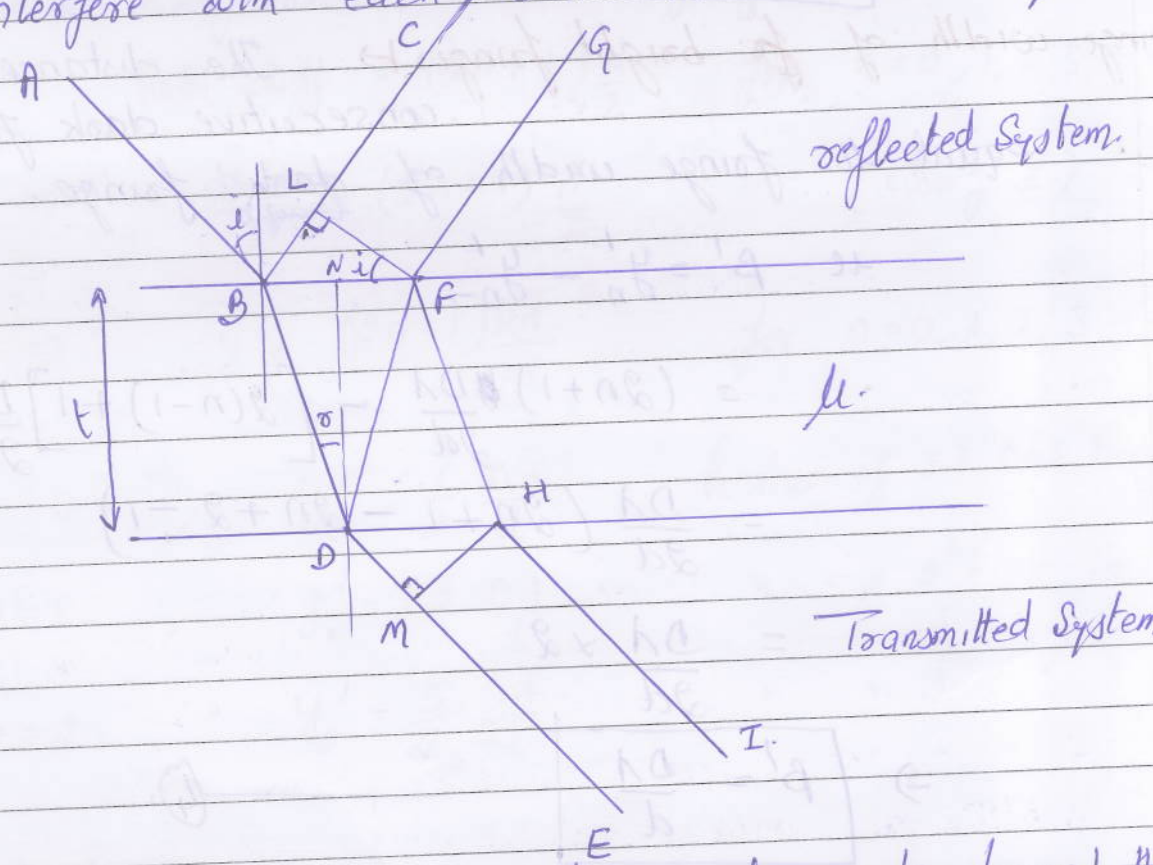 with each
C
G
A
reflected System.
L
i
N i
B
F
t
μ.
r
H
D
M
Transmitted System
I.
E